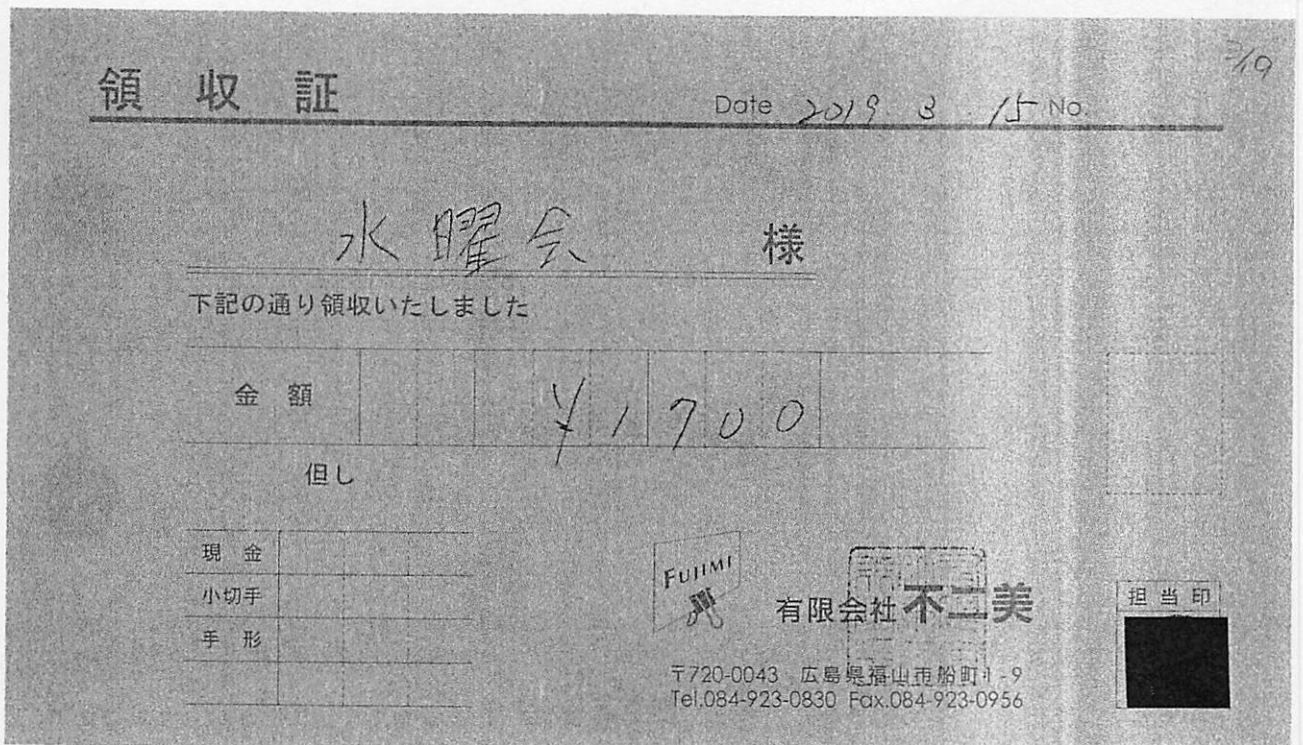 3/19
領収証
Date 2019. 3. 15 No.
水曜会 様
下記の通り領収いたしました
金額 ¥1700
但し
現金
小切手
手形
FUJIMI
有限会社 不二美
担当印
〒720-0043 広島県福山市船町1-9
Tel.084-923-0830 Fax.084-923-0956